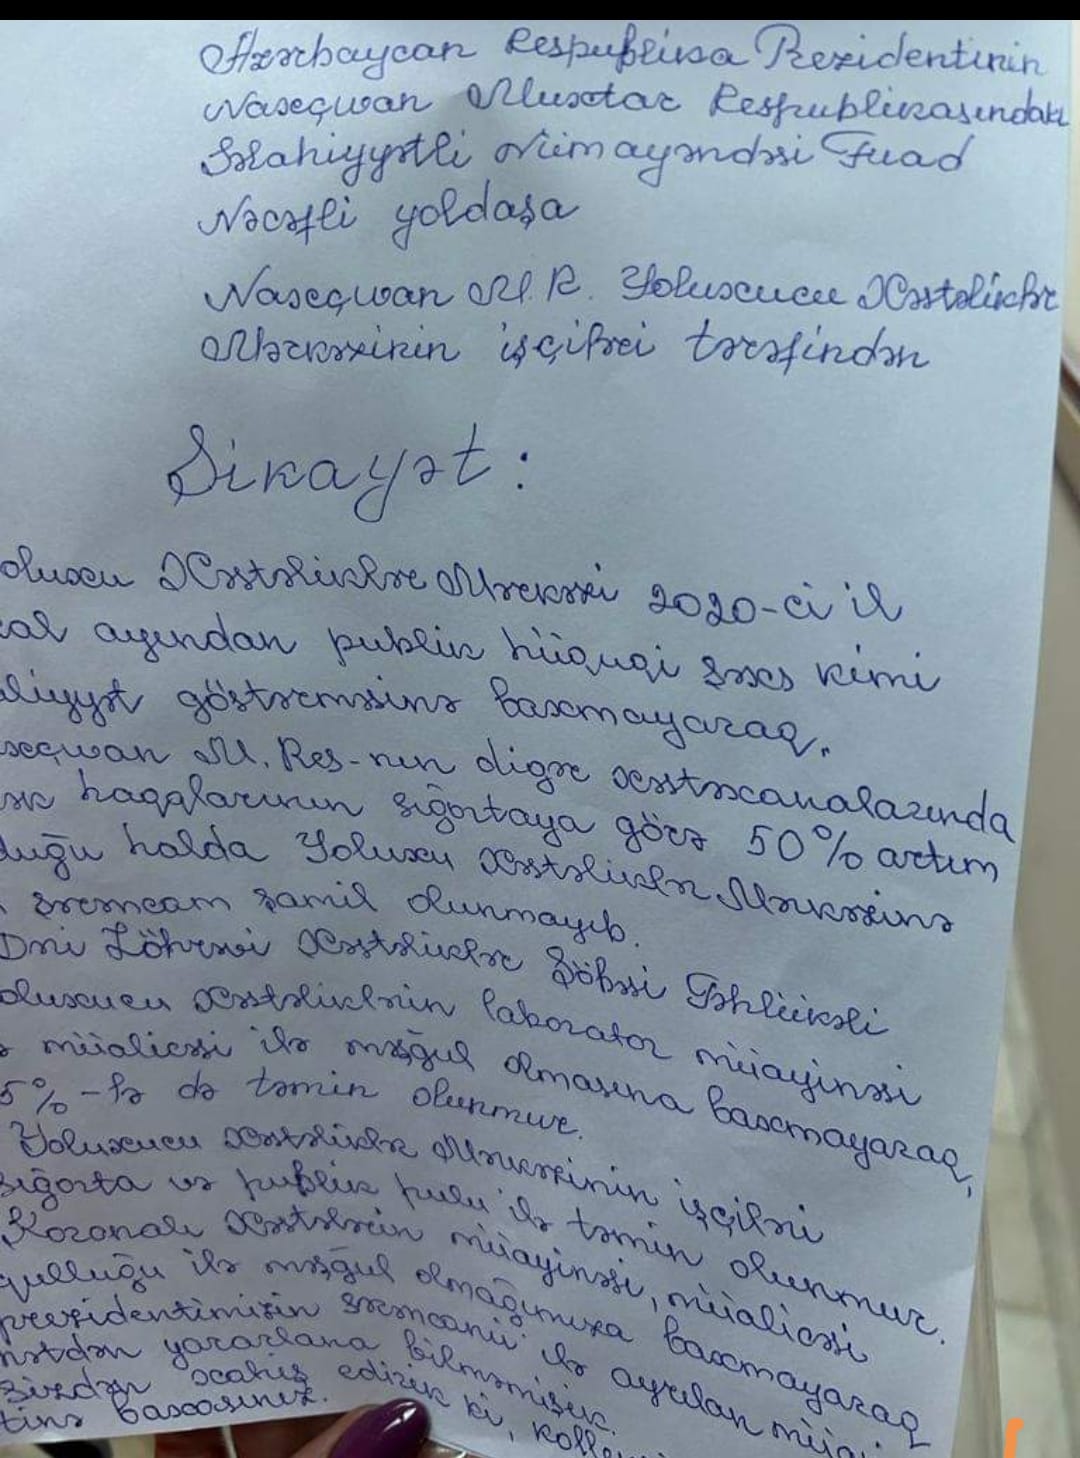 Azərbaycan Respublika Prezidentinin
Naxçıvan Muxtar Respublikasındakı
Səlahiyyətli Nümayəndəsi Fuad
Nəcəfli yoldaşa
Naxçıvan M.R. Yoluxucu Xəstəliklər
Mərkəzinin işçiləri tərəfindən
Şikayət:
oluxcu Xəstəliklər Mərkəzi 2020-ci il
ayından publik hüquqi şəxs kimi
liyyət göstərməsinə baxmayaraq,
xçıvan M. Res-nın digər xəstəxanalarında
ək haqqlarının sığortaya görə 50% artım
duğu halda Yoluxcu Xəstəliklər Mərkəzinə
sərəncam şamil olunmayıb.
Dəri Zöhrəvi Xəstəliklər Şöbəsi Təhlükəli
oluxucu Xəstəliklərin laborator müayinəsi
ə müalicəsi ilə məşğul olmasına baxmayaraq,
5%-lə də təmin olunmur.
Yoluxucu Xəstəliklər Mərkəzinin işçiləri
sığorta və publik pulu ilə təmin olunmur.
Koronalı Xəstələrin müayinəsi, müalicəsi
qulluğu ilə məşğul olmağımıza baxmayaraq
prezidentimizin sərəncamı ilə ayrılan
yararlana bilməmişik
Sizdən xahiş edirik ki,
baxasınız.